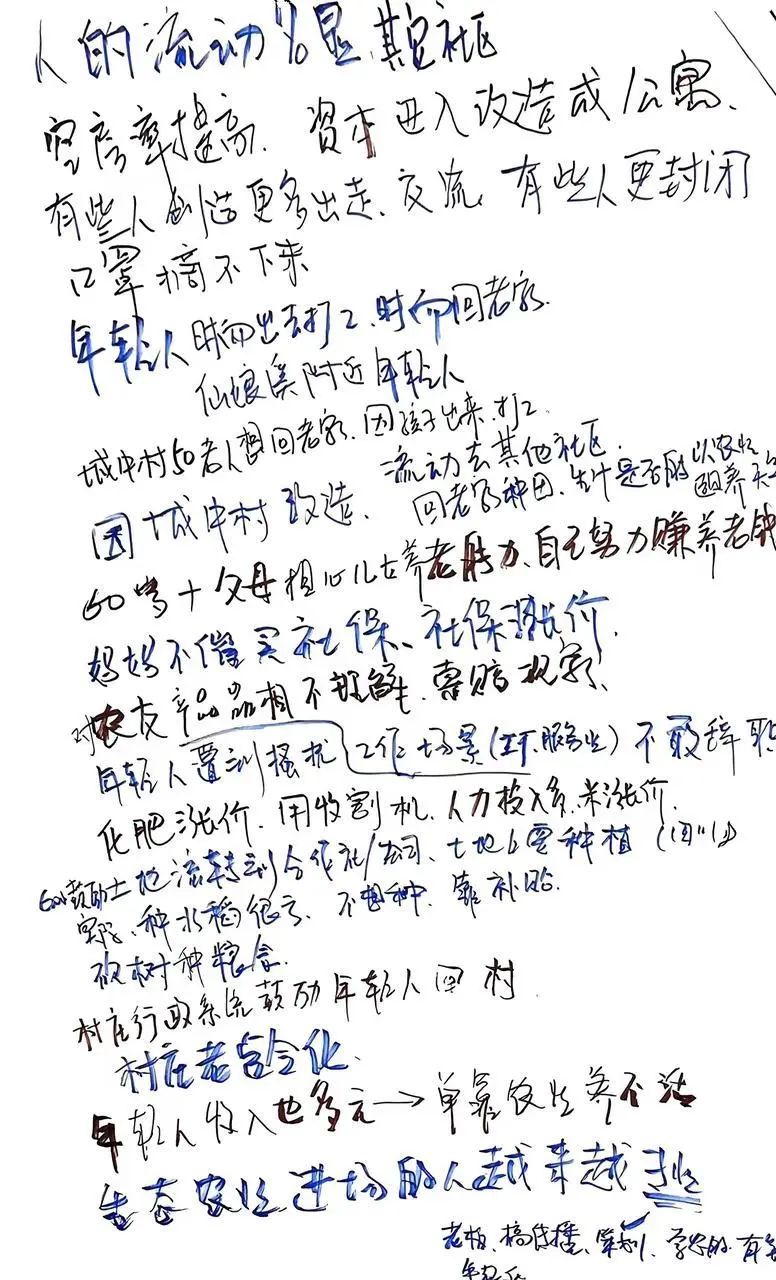 人的流动%显,其它社区
空房率提高、資本进入改造成公寓、
有些人创造更多出走、交流,有些人更封闭
口罩摘不下来
年轻人时而出去打工、时而回老家.
仙娘溪附近年轻人
城中村50老人想回老家、因孩子出来打工
因城中村改造、流动去其他社区.
回老家种田、生计是否能以农业
60岁+父母担心儿女养老能力、自己努力赚养老钱
妈妈不催买社保、社保涨价.
对农友产品品相不理解、
年轻人遭到骚扰 工作场景(工厂.服务业)不敢辞职
化肥涨价、用收割机、人力投入多、米涨价.
鼓励土地流转到合作社/公司、土地上要种植(四川)
种水稻很亏、不想种、靠补贴.
砍树种粮食.
村庄行政系统鼓励年轻人回村
村庄老龄化
年轻人收入也多元→单靠农业养不活
生态农业进场的人越来越
老板、搞直播、